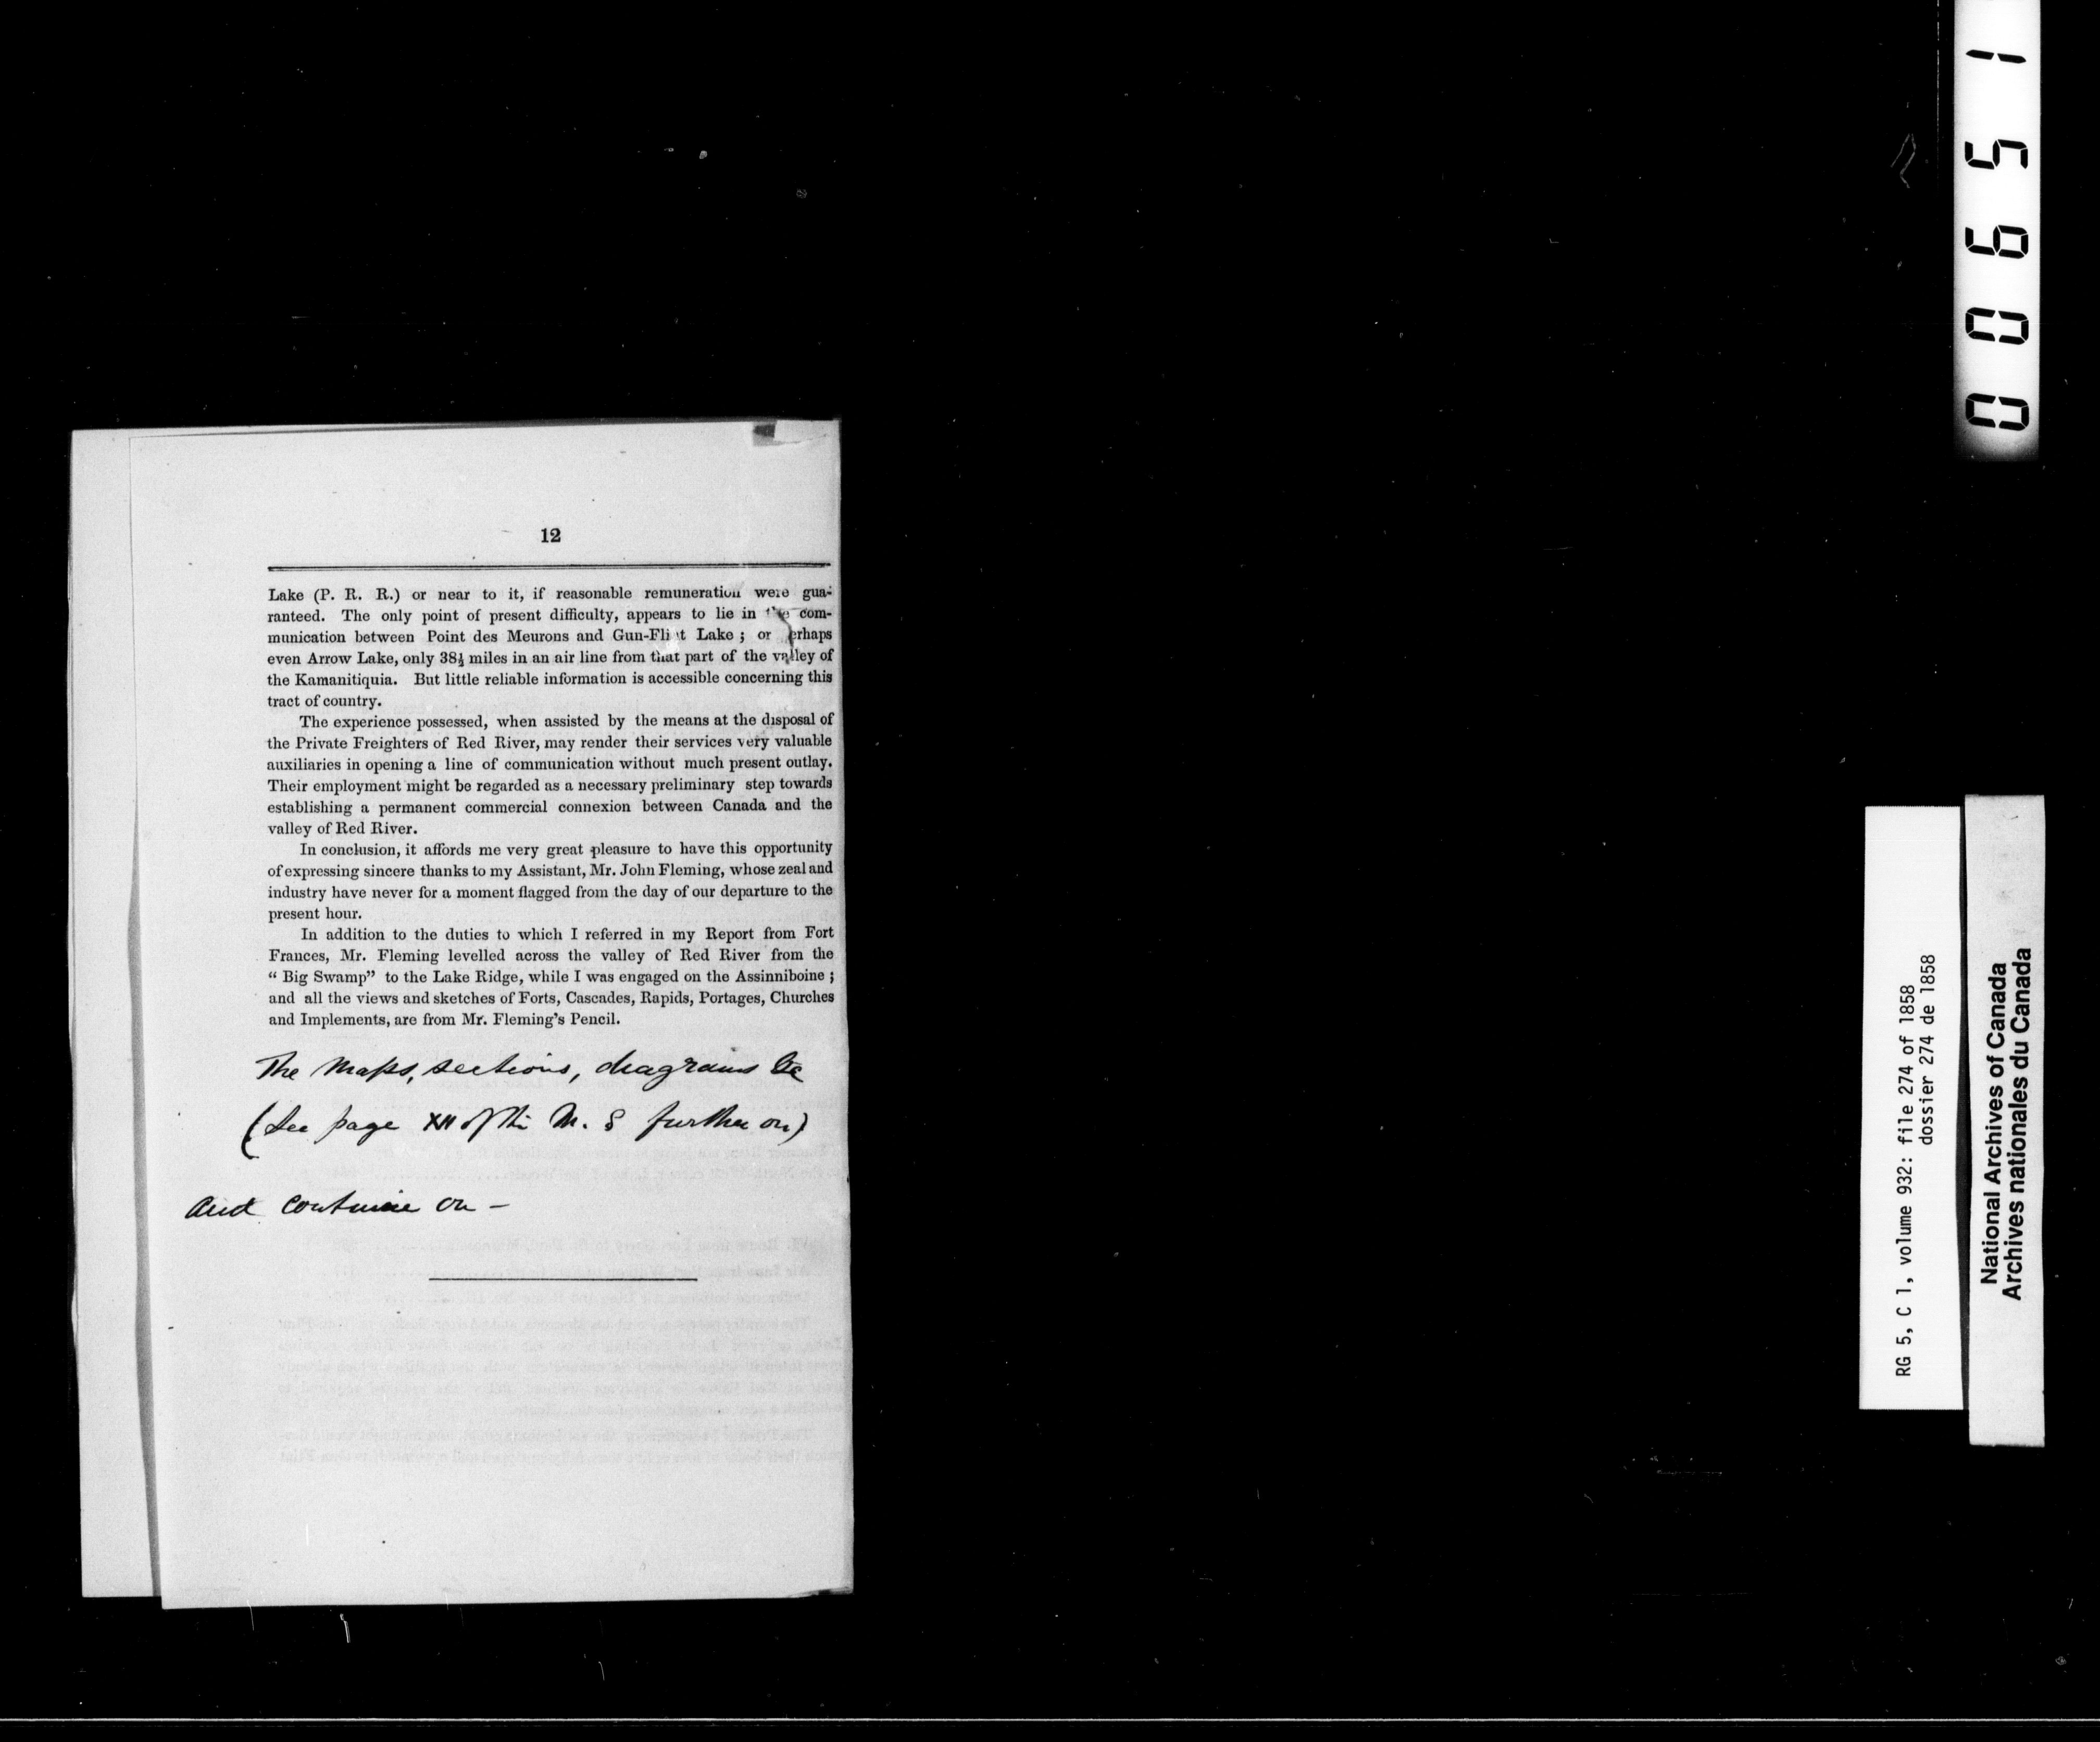 12
Lake (P. R. R.) or near to it, if reasonable remuneration were gua-
ranteed. The only point of present difficulty, appears to lie in the com-
munication between Point des Meurons and Gun-Flint Lake ; or perhaps
even Arrow Lake, only 38½ miles in an air line from that part of the valley of
the Kamanitiquia. But little reliable information is accessible concerning this
tract of country.
The experience possessed, when assisted by the means at the disposal of
the Private Freighters of Red River, may render their services very valuable
auxiliaries in opening a line of communication without much present outlay.
Their employment might be regarded as a necessary preliminary step towards
establishing a permanent commercial connexion between Canada and the
valley of Red River.
In conclusion, it affords me very great pleasure to have this opportunity
of expressing sincere thanks to my Assistant, Mr. John Fleming, whose zeal and
industry have never for a moment flagged from the day of our departure to the
present hour.
In addition to the duties to which I referred in my Report from Fort
Frances, Mr. Fleming levelled across the valley of Red River from the
“ Big Swamp” to the Lake Ridge, while I was engaged on the Assinniboine ;
and all the views and sketches of Forts, Cascades, Rapids, Portages, Churches
and Implements, are from Mr. Fleming's Pencil.
The Maps, sections, diagrams &c
(See page XII of the M. S further on)
and continue on —
00651
RG 5, C 1, volume 932: file 274 of 1858
dossier 274 de 1858
National Archives of Canada
Archives nationales du Canada